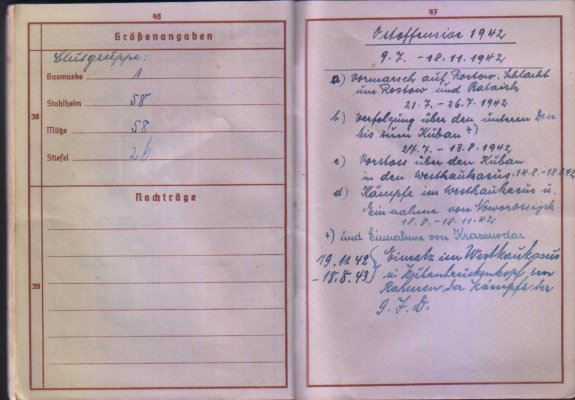 46
Größenangaben
Blutgruppe:
Gasmaske 1
Stahlhelm 58
Mütze 58
Stiefel 26
38
Nachträge
39
47
Ostoffensive 1942
9.7. - 18.11.1942
a) Vormarsch auf Rostow. Schlacht
um Rostow und Bataisk
21.7. - 26.7.1942
b) Verfolgung über den unteren Don
bis zum Kuban +)
27.7. - 13.8.1942
c) Vorstoss über den Kuban
in den Westkaukasus. 14.8. - 18.8.42
d) Kämpfe im Westkaukasus u.
Einnahme von Noworossijsk
18.8. - 18.11.42
+) und Einnahme von Krassnodar
19.11.42 Einsatz im Westkaukasus
- 18.8.43 u. Kubanbrückenkopf im
Rahmen der Kämpfe der
9. I. D.